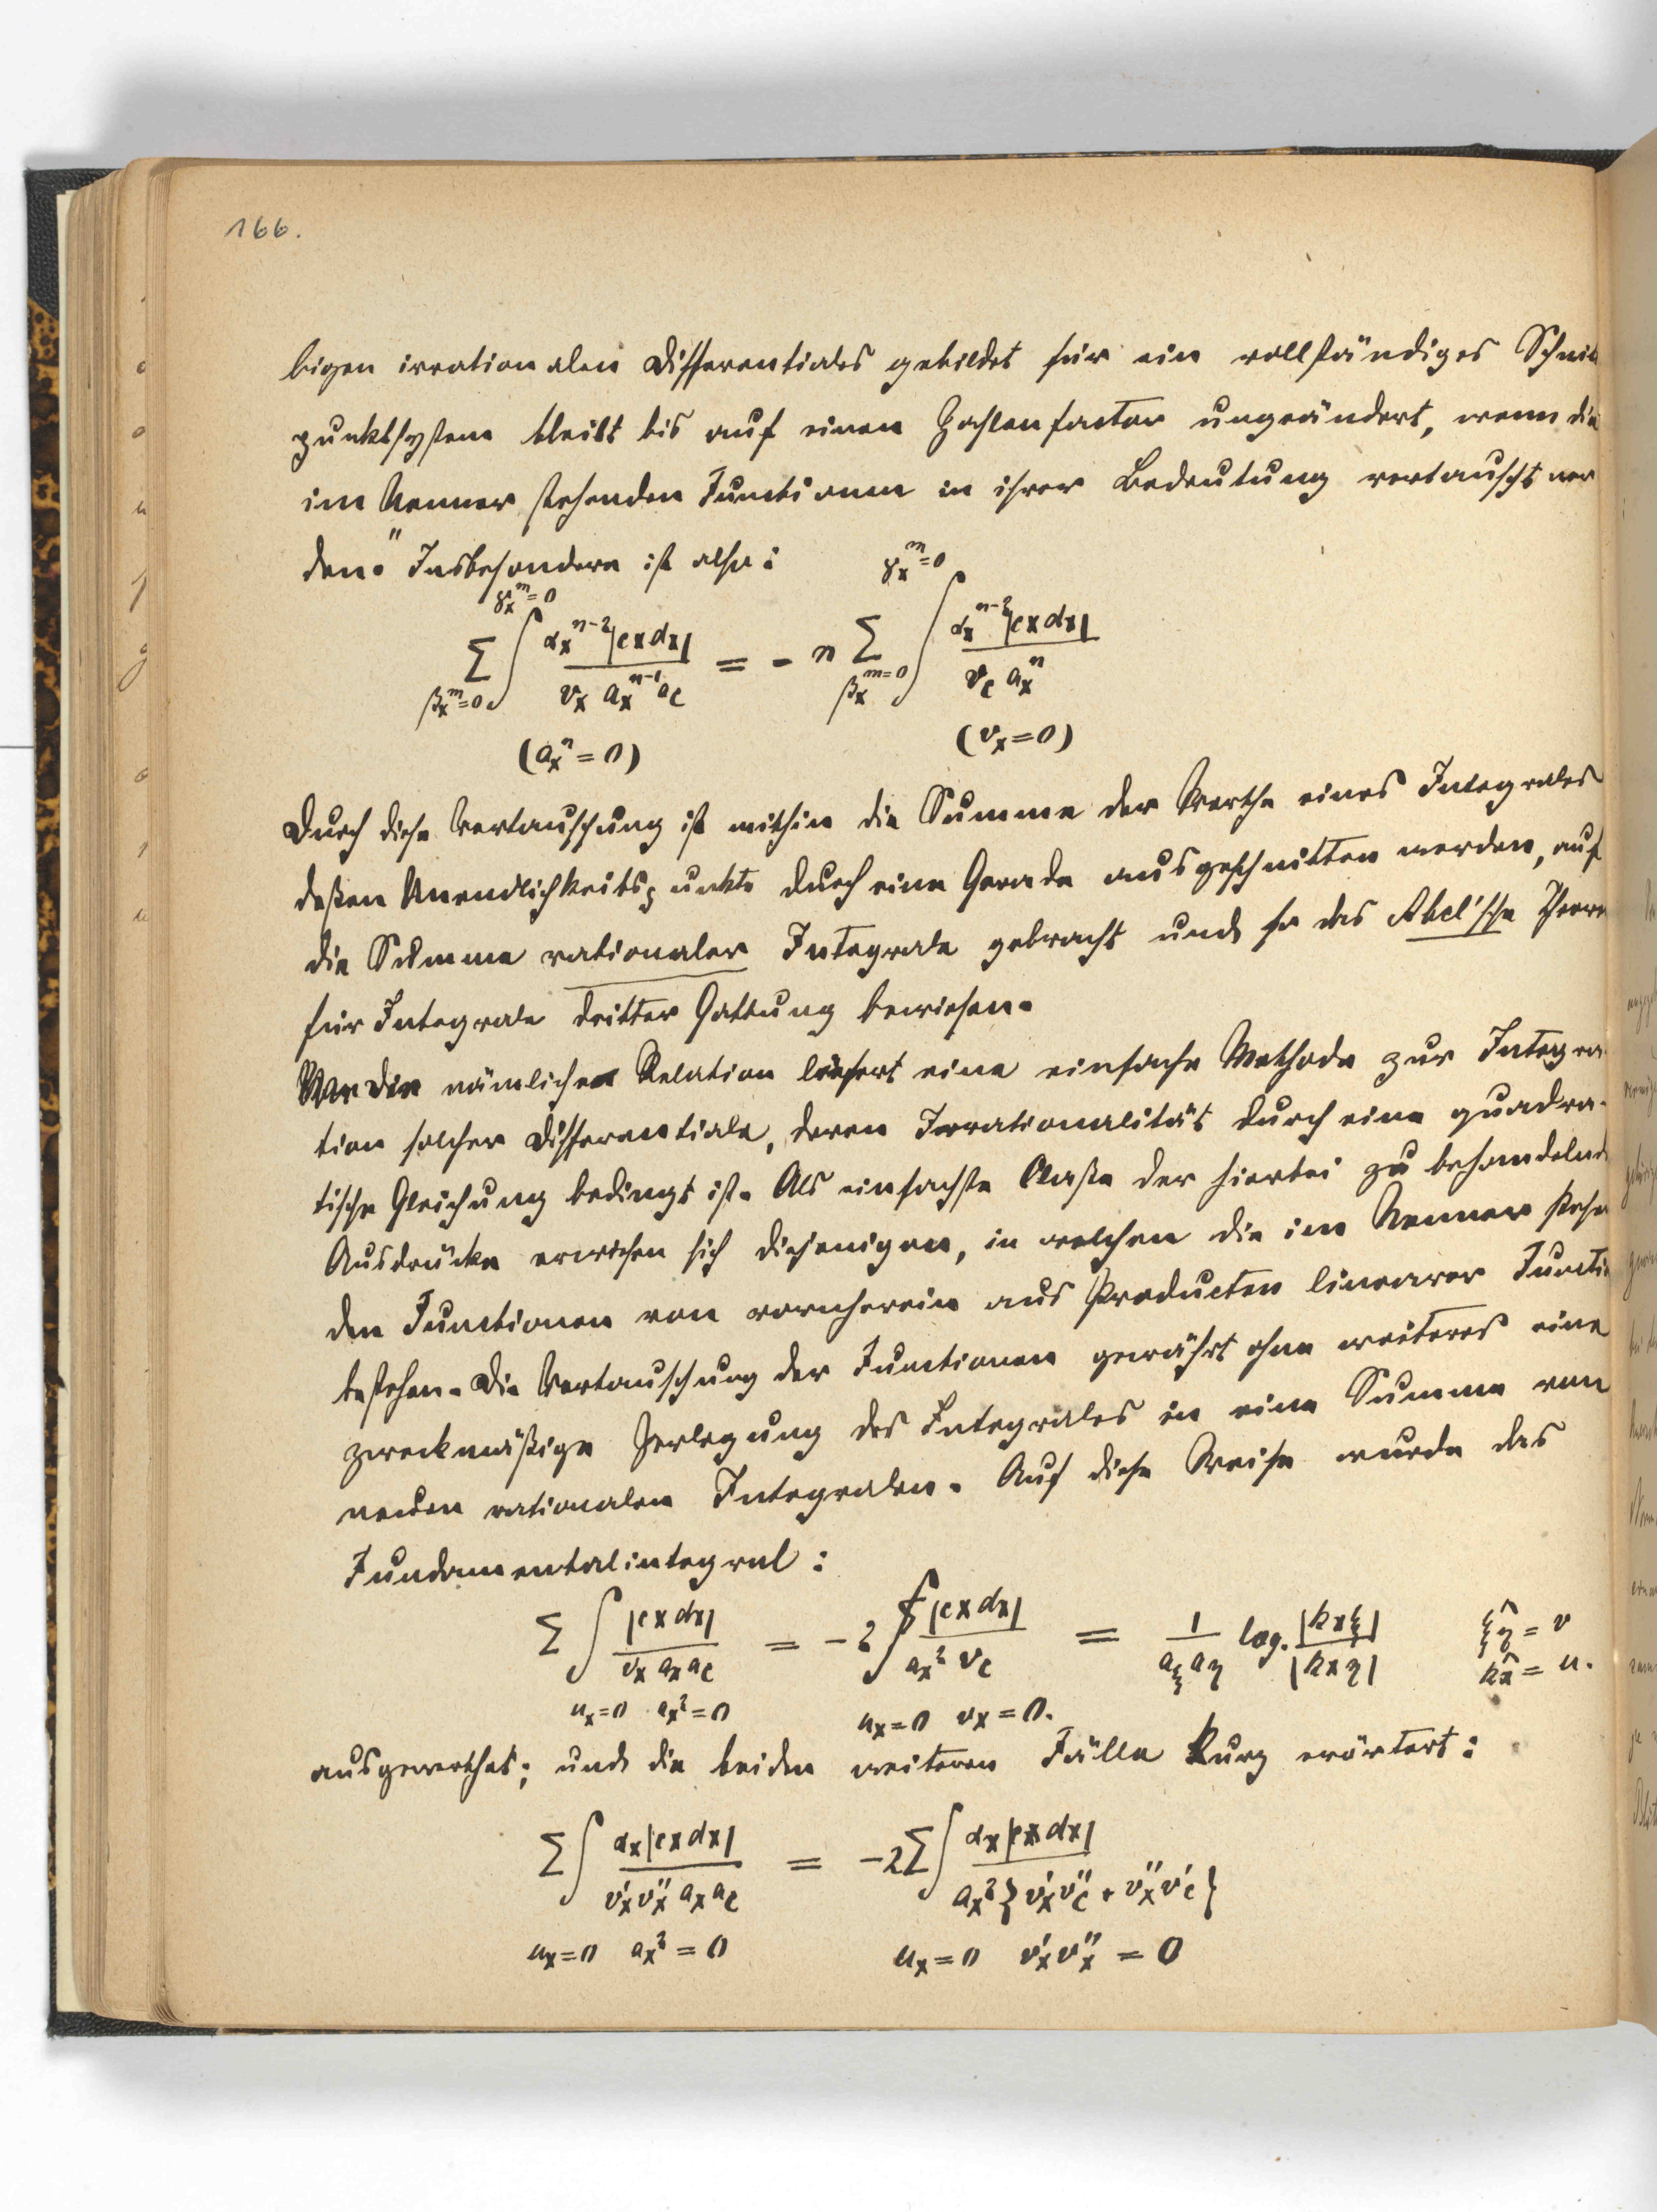 166.
bigen irrationalen Differentiales gebildet für ein vollständiges Schnitt
punktsystem bleibt bis auf einen Zahlenfactor ungeändert, wenn die
im Nenner stehenden Functionen in ihrer Bedeutung vertauscht wer
den." Insbesondere ist also:
γ_x^m=0 γ_x^m=0
Σ ∫ α_x^{n-2}|cxdx| / v_x a_x^{n-1} a_c = - n Σ ∫ α_x^{n-2}|cxdx| / v_c a_x^n
β_x^m=0 β_x^m=0
(a_x^n = 0) (v_x = 0)
Durch diese Vertauschung ist mithin die Summe der Werthe eines Integrales
deßen Unendlichkeitspunkte durch eine Gerade ausgeschnitten werden, auf
die Summe rationaler Integrale gebracht und so das Abel'sche Theorem
für Integrale dritter Gattung bewiesen.
Die nämliche Relation liefert eine einfache Methode zur Integra-
tion solcher Differentiale, deren Irrationalität durch eine quadra-
tische Gleichung bedingt ist. Als einfachste Claße der hierbei zu behandelnden
Ausdrücke erwiesen sich diejenigen, in welchen die im Nenner stehen
den Functionen von vornherein aus Producten linearer Functio
bestehen. Die Vertauschung der Functionen gewährt ohne weiteres eine
zweckmäßige Zerlegung des Integrales in eine Summe von
neuen rationalen Integralen. Auf diese Weise wurde das
Fundamentalintegral:
Σ ∫ |cxdx| / v_x a_x a_c = -2 ∫ |cxdx| / a_x^2 v_c = 1 / a_ξ a_η log. |kxξ| / |kxη| ξ͡η = v
k͡x = u.
u_x=0 a_x^2=0 u_x=0 v_x=0.
ausgewerthet; und die beiden weiteren Fälle kurz erörtert:
Σ ∫ α_x|cxdx| / v'_x v''_x a_x a_c = -2Σ ∫ α_x|cxdx| / a_x^2 {v'_x v''_c + v''_x v'_c}
u_x=0 a_x^2=0 u_x=0 v'_x v''_x = 0